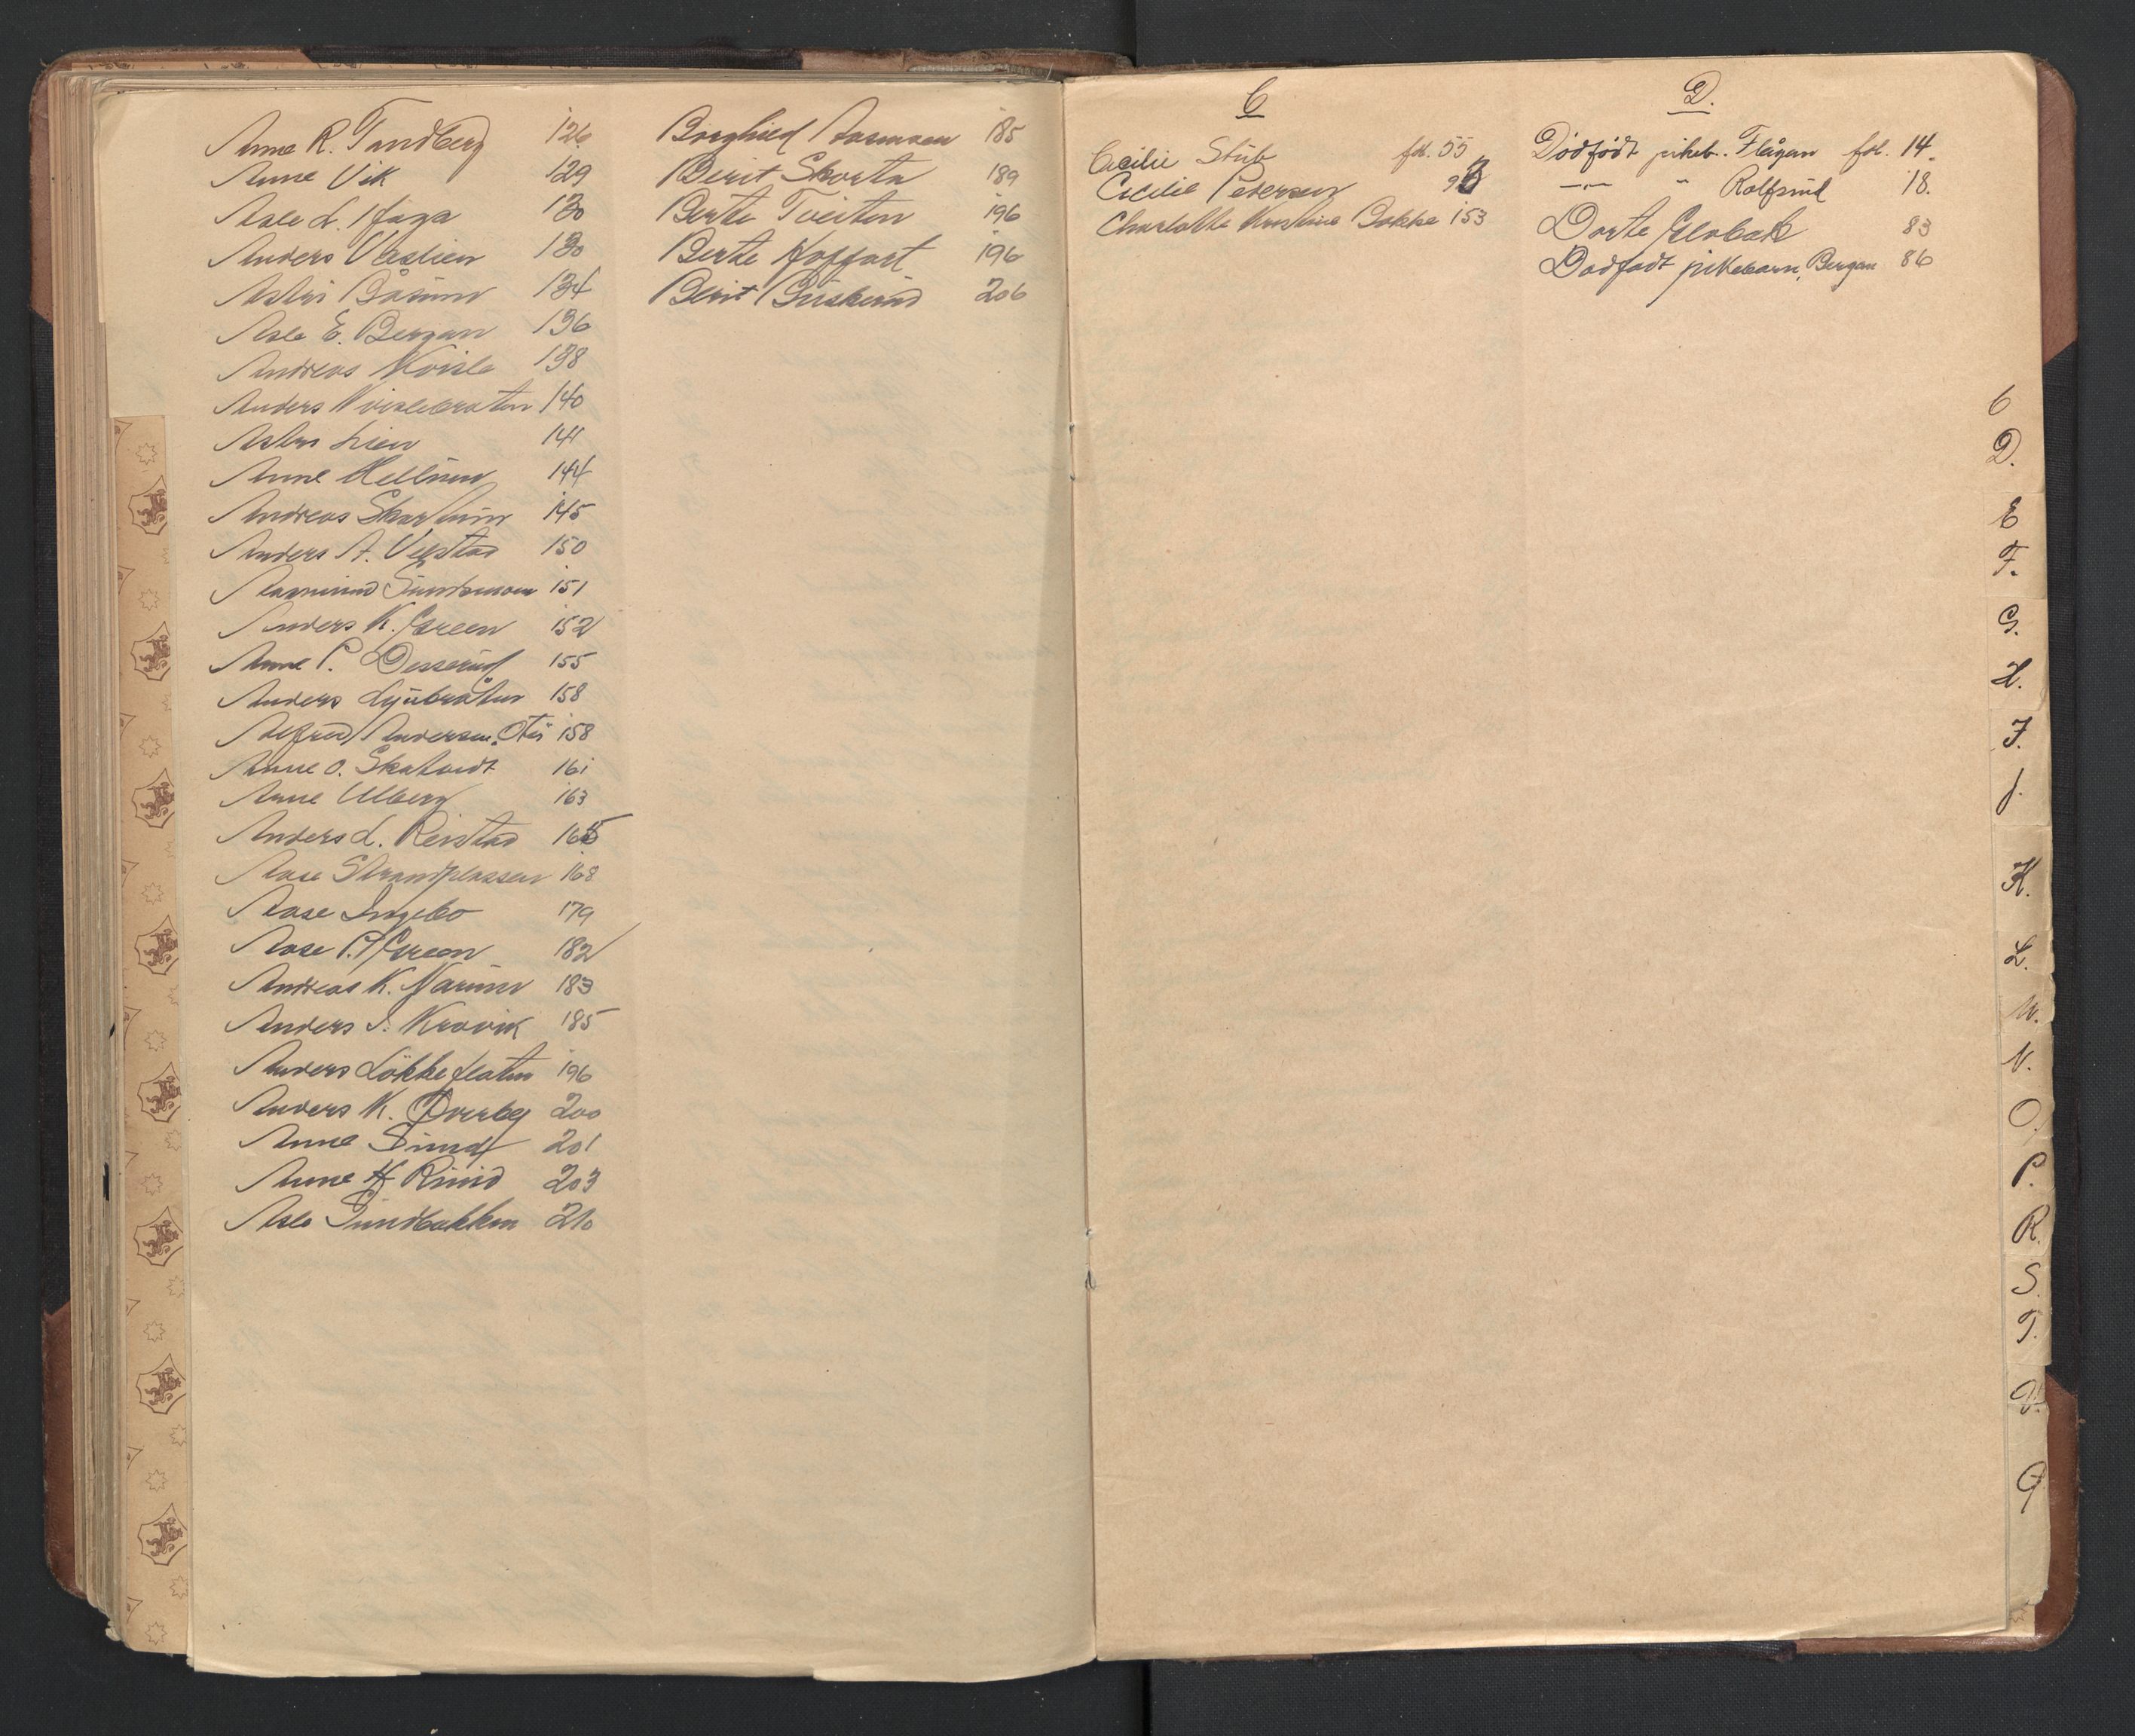 Anne R. Tandberg 126
Anne Vik 129
Asle L. Haga 130
Anders Veslien 130
Astri Båsum 134
Asle E. Bergan 136
Andreas Kvisle 138
Anders Kvislebraaten 140
Astri Lien 141
Anne Mellum 144
Andreas Skarhim 145
Anders A. Velstad 150
Aasmund Sundsmoen 151
Anders K. Green 152
Anne P. Desserud 155
Anders Ljubråten 158
Alfred Andersen. 158
Anne O. Skatvedt 161
Anne Ulberg 163
Anders L. Reistad 165
Aase Strandplassen 168
Aase Ingebo 179
Aase P. Green 182
Andreas K. Narum 183
Anders S. Kravik 185
Anders Lökkeflaten 196
Anders K. Överby 200
Anne Sund 201
Anne H Ruud 203
Asle Sundbakken 210
Borghild Aasmoen 185
Berit Skorta 189
Berte Tveiten 196
Berte Hoffart 196
Berit Buskerud 206
C
Cecilie Stub fol. 55
Cecilie Petersen
Charlotte Kristine Bakke 153
D.
Dödfödt pikeb. Flågan fol. 14.
— " — " Rolfsrud 18.
Dorte Globak 83
Dødfødt pikebarn, Bergan 86
C
D.
E
F.
G.
H.
I.
J.
K.
L.
M.
N.
O.
P.
R.
S.
T.
V.
Ø